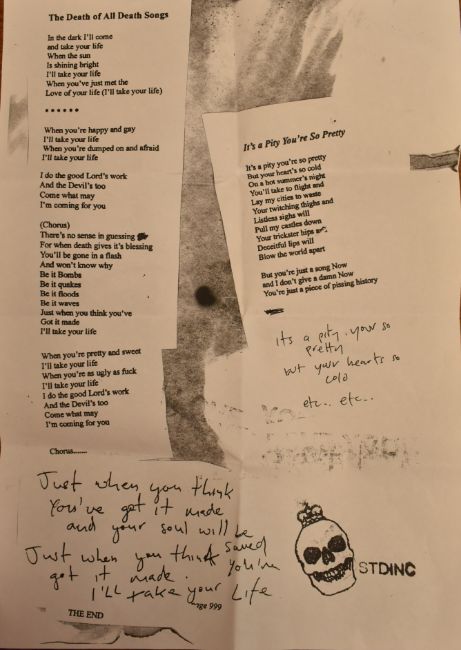 The Death of All Death Songs
In the dark I'll come
and take your life
When the sun
Is shining bright
I'll take your life
When you've just met the
Love of your life (I'll take your life)
* * * * * *
When you're happy and gay
I'll take your life
When you're dumped on and afraid
I'll take your life
I do the good Lord's work
And the Devil's too
Come what may
I'm coming for you
(Chorus)
There's no sense in guessing
For when death gives it's blessing
You'll be gone in a flash
And won't know why
Be it Bombs
Be it quakes
Be it floods
Be it waves
Just when you think you've
Got it made
I'll take your life
When you're pretty and sweet
I'll take your life
When you're as ugly as fuck
I'll take your life
I do the good Lord's work
And the Devil's too
Come what may
I'm coming for you
Chorus.......
Just when you think
You've got it made
and your soul will be
saved
Just when you think you've
got it made.
I'LL take your Life
THE END
It's a Pity You're So Pretty
It's a pity you're so pretty
But your heart's so cold
On a hot summer's night
You'll take to flight and
Lay my cities to waste
Your twitching thighs and
Listless sighs will
Pull my castles down
Your trickster hips
Deceitful lips will
Blow the world apart
But you're just a song Now
and I don't give a damn Now
You're just a piece of pissing history
its a pity your so
pretty
but your hearts so
cold
etc... etc...
STDINC